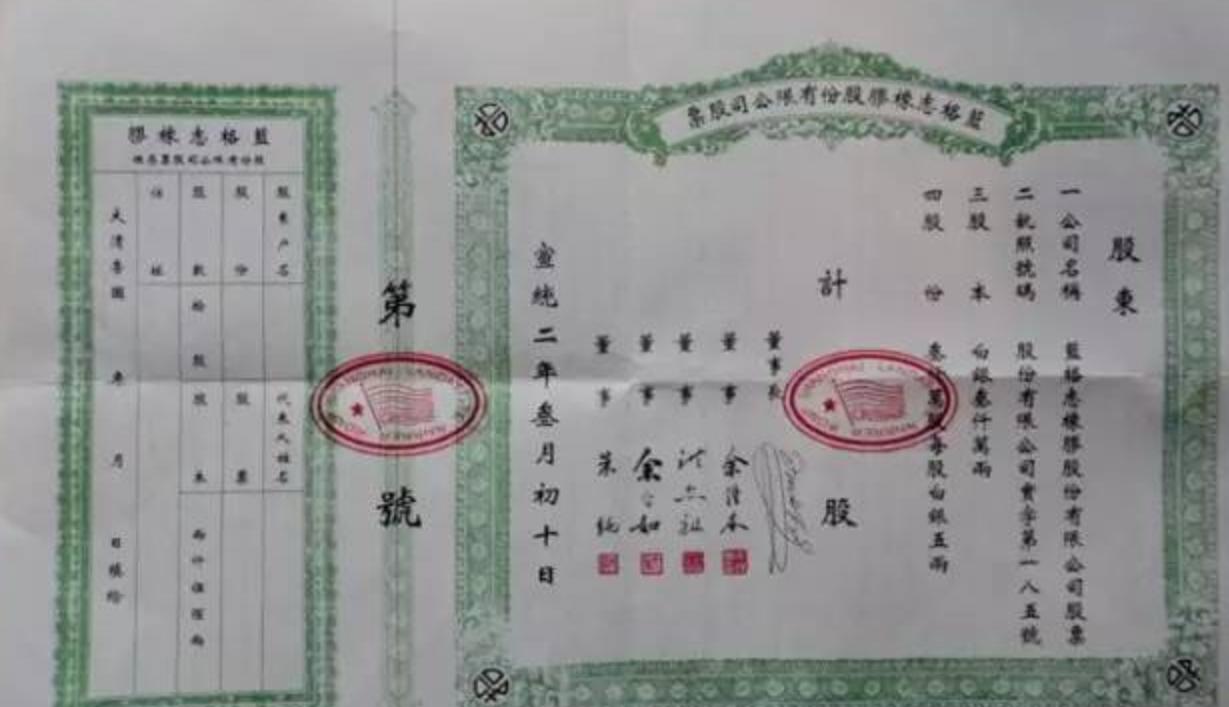 藍格志橡膠股份有限公司股票
股東
一公司名稱 藍格志橡膠股份有限公司股票
二執照號碼 股份有限公司實字第一八五號
三股本 白銀叁仟萬兩
四股份 每股白銀五兩
計 股
董事長
董事 余
董事
董事 余
董事 朱
宣統二年叁月初十日
第 號
藍格志橡膠
股份有限公司股票存根
股東戶名 代表人姓名
股份 股票
股款
住址
大清帝國 年 月 日填給